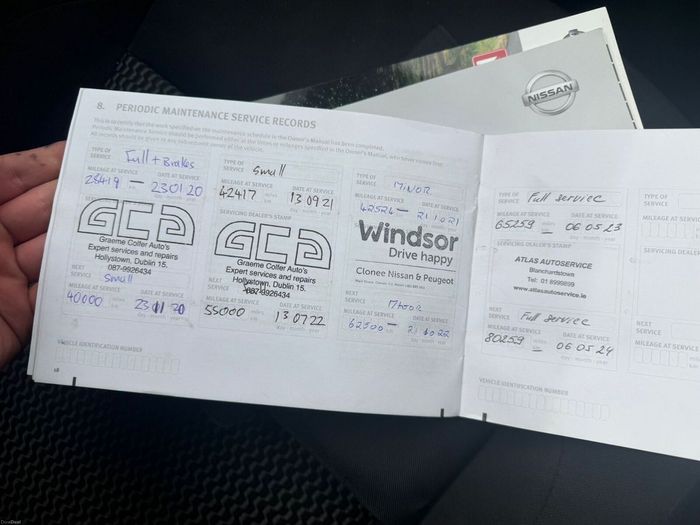 NISSAN
8. PERIODIC MAINTENANCE SERVICE RECORDS
This is to certify that the work specified in the maintenance schedule in the Owner's Manual has been completed.
Periodic Maintenance Service should be performed either at the times or mileages specified in the Owner's Manual, whichever comes first.
All records should be given to any subsequent owner of the vehicle.
TYPE OF SERVICE Full + Brakes
MILEAGE AT SERVICE DATE AT SERVICE
28419 - 23 01 20
GCA
Graeme Colfer Auto's
Expert services and repairs
Hollystown, Dublin 15.
087-9926434
NEXT SERVICE Small
MILEAGE AT SERVICE DATE AT SERVICE
40000 23 11 20
TYPE OF SERVICE Small
MILEAGE AT SERVICE DATE AT SERVICE
42417 13 09 21
SERVICING DEALER'S STAMP
GCA
Graeme Colfer Auto's
Expert services and repairs
Hollystown, Dublin 15.
087-9926434
NEXT SERVICE
MILEAGE AT SERVICE DATE AT SERVICE
55000 13 07 22
TYPE OF SERVICE MINOR
MILEAGE AT SERVICE DATE AT SERVICE
42524 - 21 10 21
Windsor
Drive happy
Clonee Nissan & Peugeot
NEXT SERVICE MINOR
MILEAGE AT SERVICE DATE AT SERVICE
62500 - 21 10 22
VEHICLE IDENTIFICATION NUMBER
18
TYPE OF SERVICE Full service
MILEAGE AT SERVICE DATE AT SERVICE
65259 - 06 05 23
SERVICING DEALER'S STAMP
ATLAS AUTOSERVICE
Blanchardstown
Tel: 01 8999899
www.atlasautoservice.ie
NEXT SERVICE Full service
MILEAGE AT SERVICE DATE AT SERVICE
80259 - 06 05 24
VEHICLE IDENTIFICATION NUMBER
TYPE OF SERVICE
MILEAGE AT SERVICE
SERVICING DEALER
NEXT SERVICE
MILEAGE AT SERVICE
DoneDeal